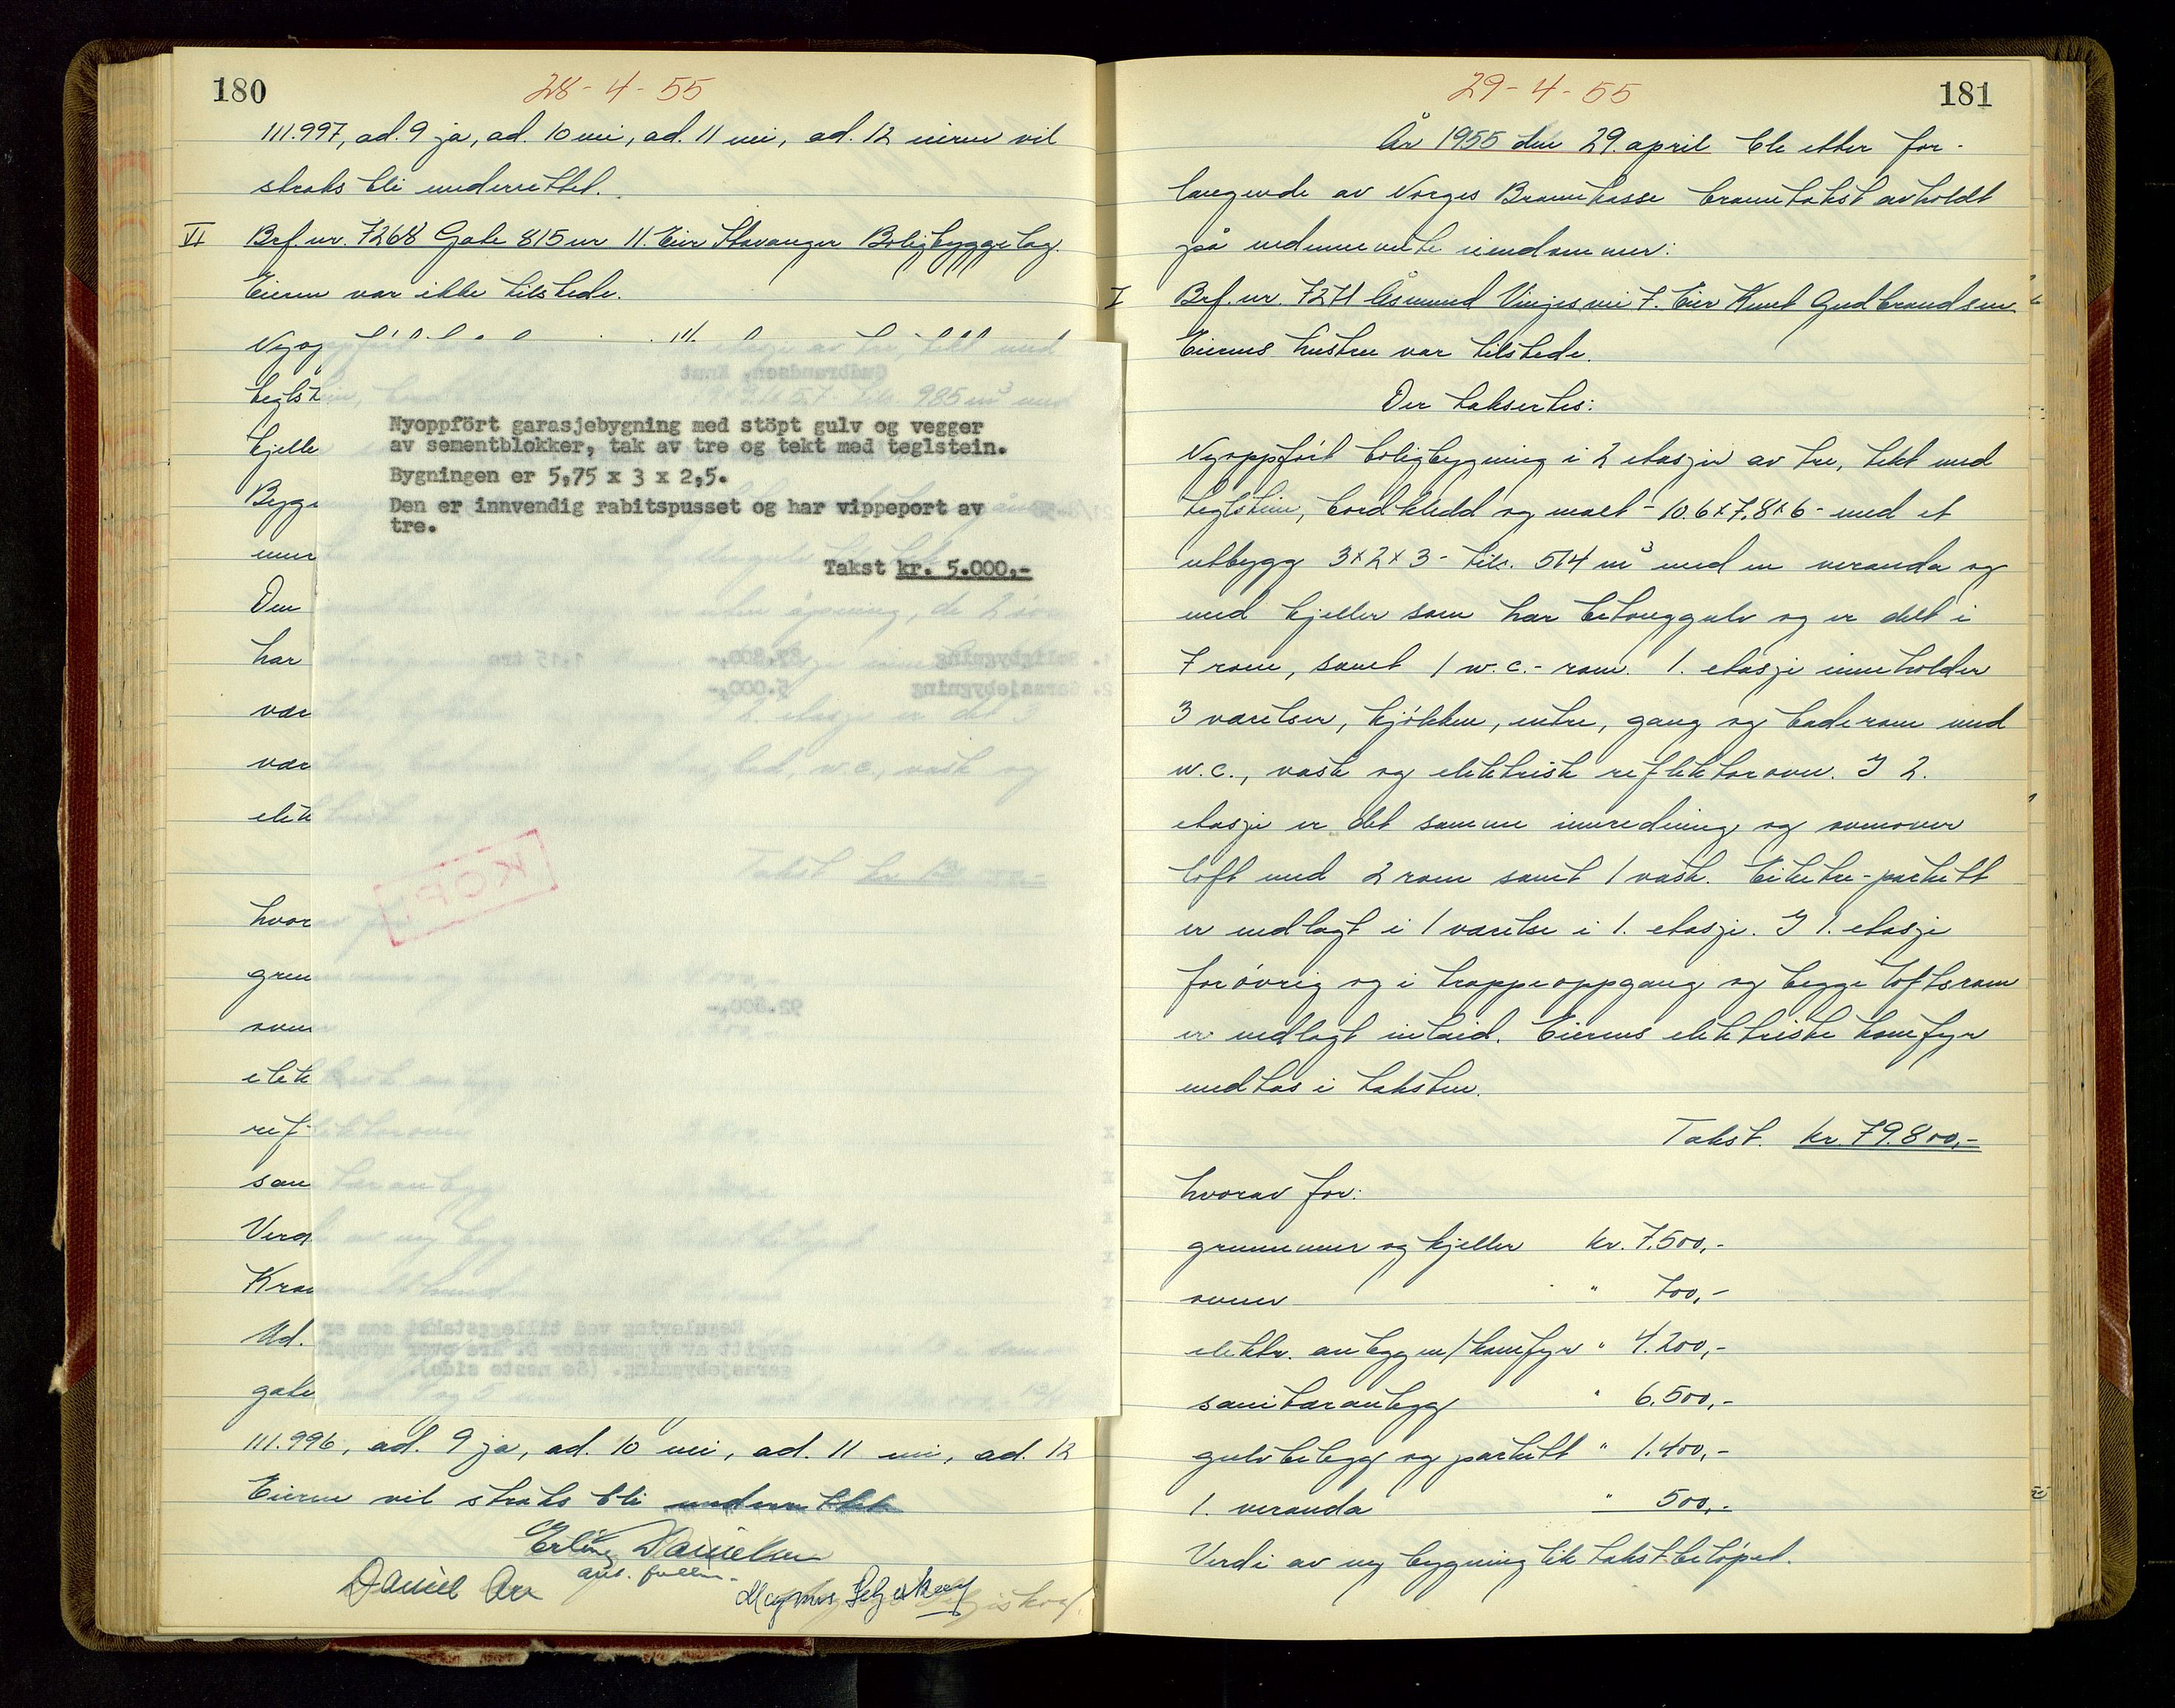 180
28-4-55
111.997, ad. 9 ja, ad. 10 nei, ad. 11 nei, ad. 12 eieren vil
straks bli underrettet.
VI Brf. nr. 7268 Gate 815 nr 11. Eier Stavanger Boligbyggelag.
Eieren var ikke tilstede.
Nyopp
teglst
kjelle
Bygg
mur
Den
har
vær
vær
elek
hvor
grun
ovne
elek
ref
san
Verd
Kran
Ad.
gate
Nyoppfört garasjebygning med stöpt gulv og vegger
av sementblokker, tak av tre og tekt med teglstein.
Bygningen er 5,75 x 3 x 2,5.
Den er innvendig rabitspusset og har vippeport av
tre.
Takst kr. 5.000,-
KOPI
111.996, ad. 9 ja, ad. 10 nei, ad. 11 nei, ad. 12
Eieren vil straks bli underrettet
Erling Danielsen
Daniel Are
181
29-4-55
År 1955 den 29. april ble etter for-
langende av Norges Brannkasse branntakst avholdt
på nedennevnte eiendommer:
I Brf. nr. 7271 Åsmund Vinjes vei 7. Eier Knut Gudbrandsen
Eierens hustru var tilstede.
Der taksertes:
Nyoppført boligbygning i 2 etasjer av tre, tekt med
teglstein, bordkledd og malt - 10.6x7,8x6 - med et
utbygg 3x2x3 - tils. 514 m³ med en veranda og
med kjeller som har betonggulv og er delt i
7 rom, samt 1 w.c.-rom. 1. etasje inneholder
3 værelser, kjøkken, entre, gang og baderom med
w.c., vask og elektrisk reflektorovn. I 2.
etasje er det samme innredning og ovenover
loft med 2 rom samt 1 vask. Eiketre-parkett
er nedlagt i 1 værelse i 1. etasje. I 1. etasje
forøvrig og i trappeoppgang og begge loftsrom
er nedlagt inlaid. Eierens elektriske komfyr
medtas i taksten.
Takst. kr. 79.800,-
hvorav for:
grunnmur og kjeller kr. 7.500,-
ovner " 700,-
elektr. anlegg m/komfyr " 4.200,-
sanitæranlegg " 6.500,-
gulvbelegg og parkett " 1.400,-
1. veranda " 500,-
Verdi av ny bygning lik takstbeløpet.